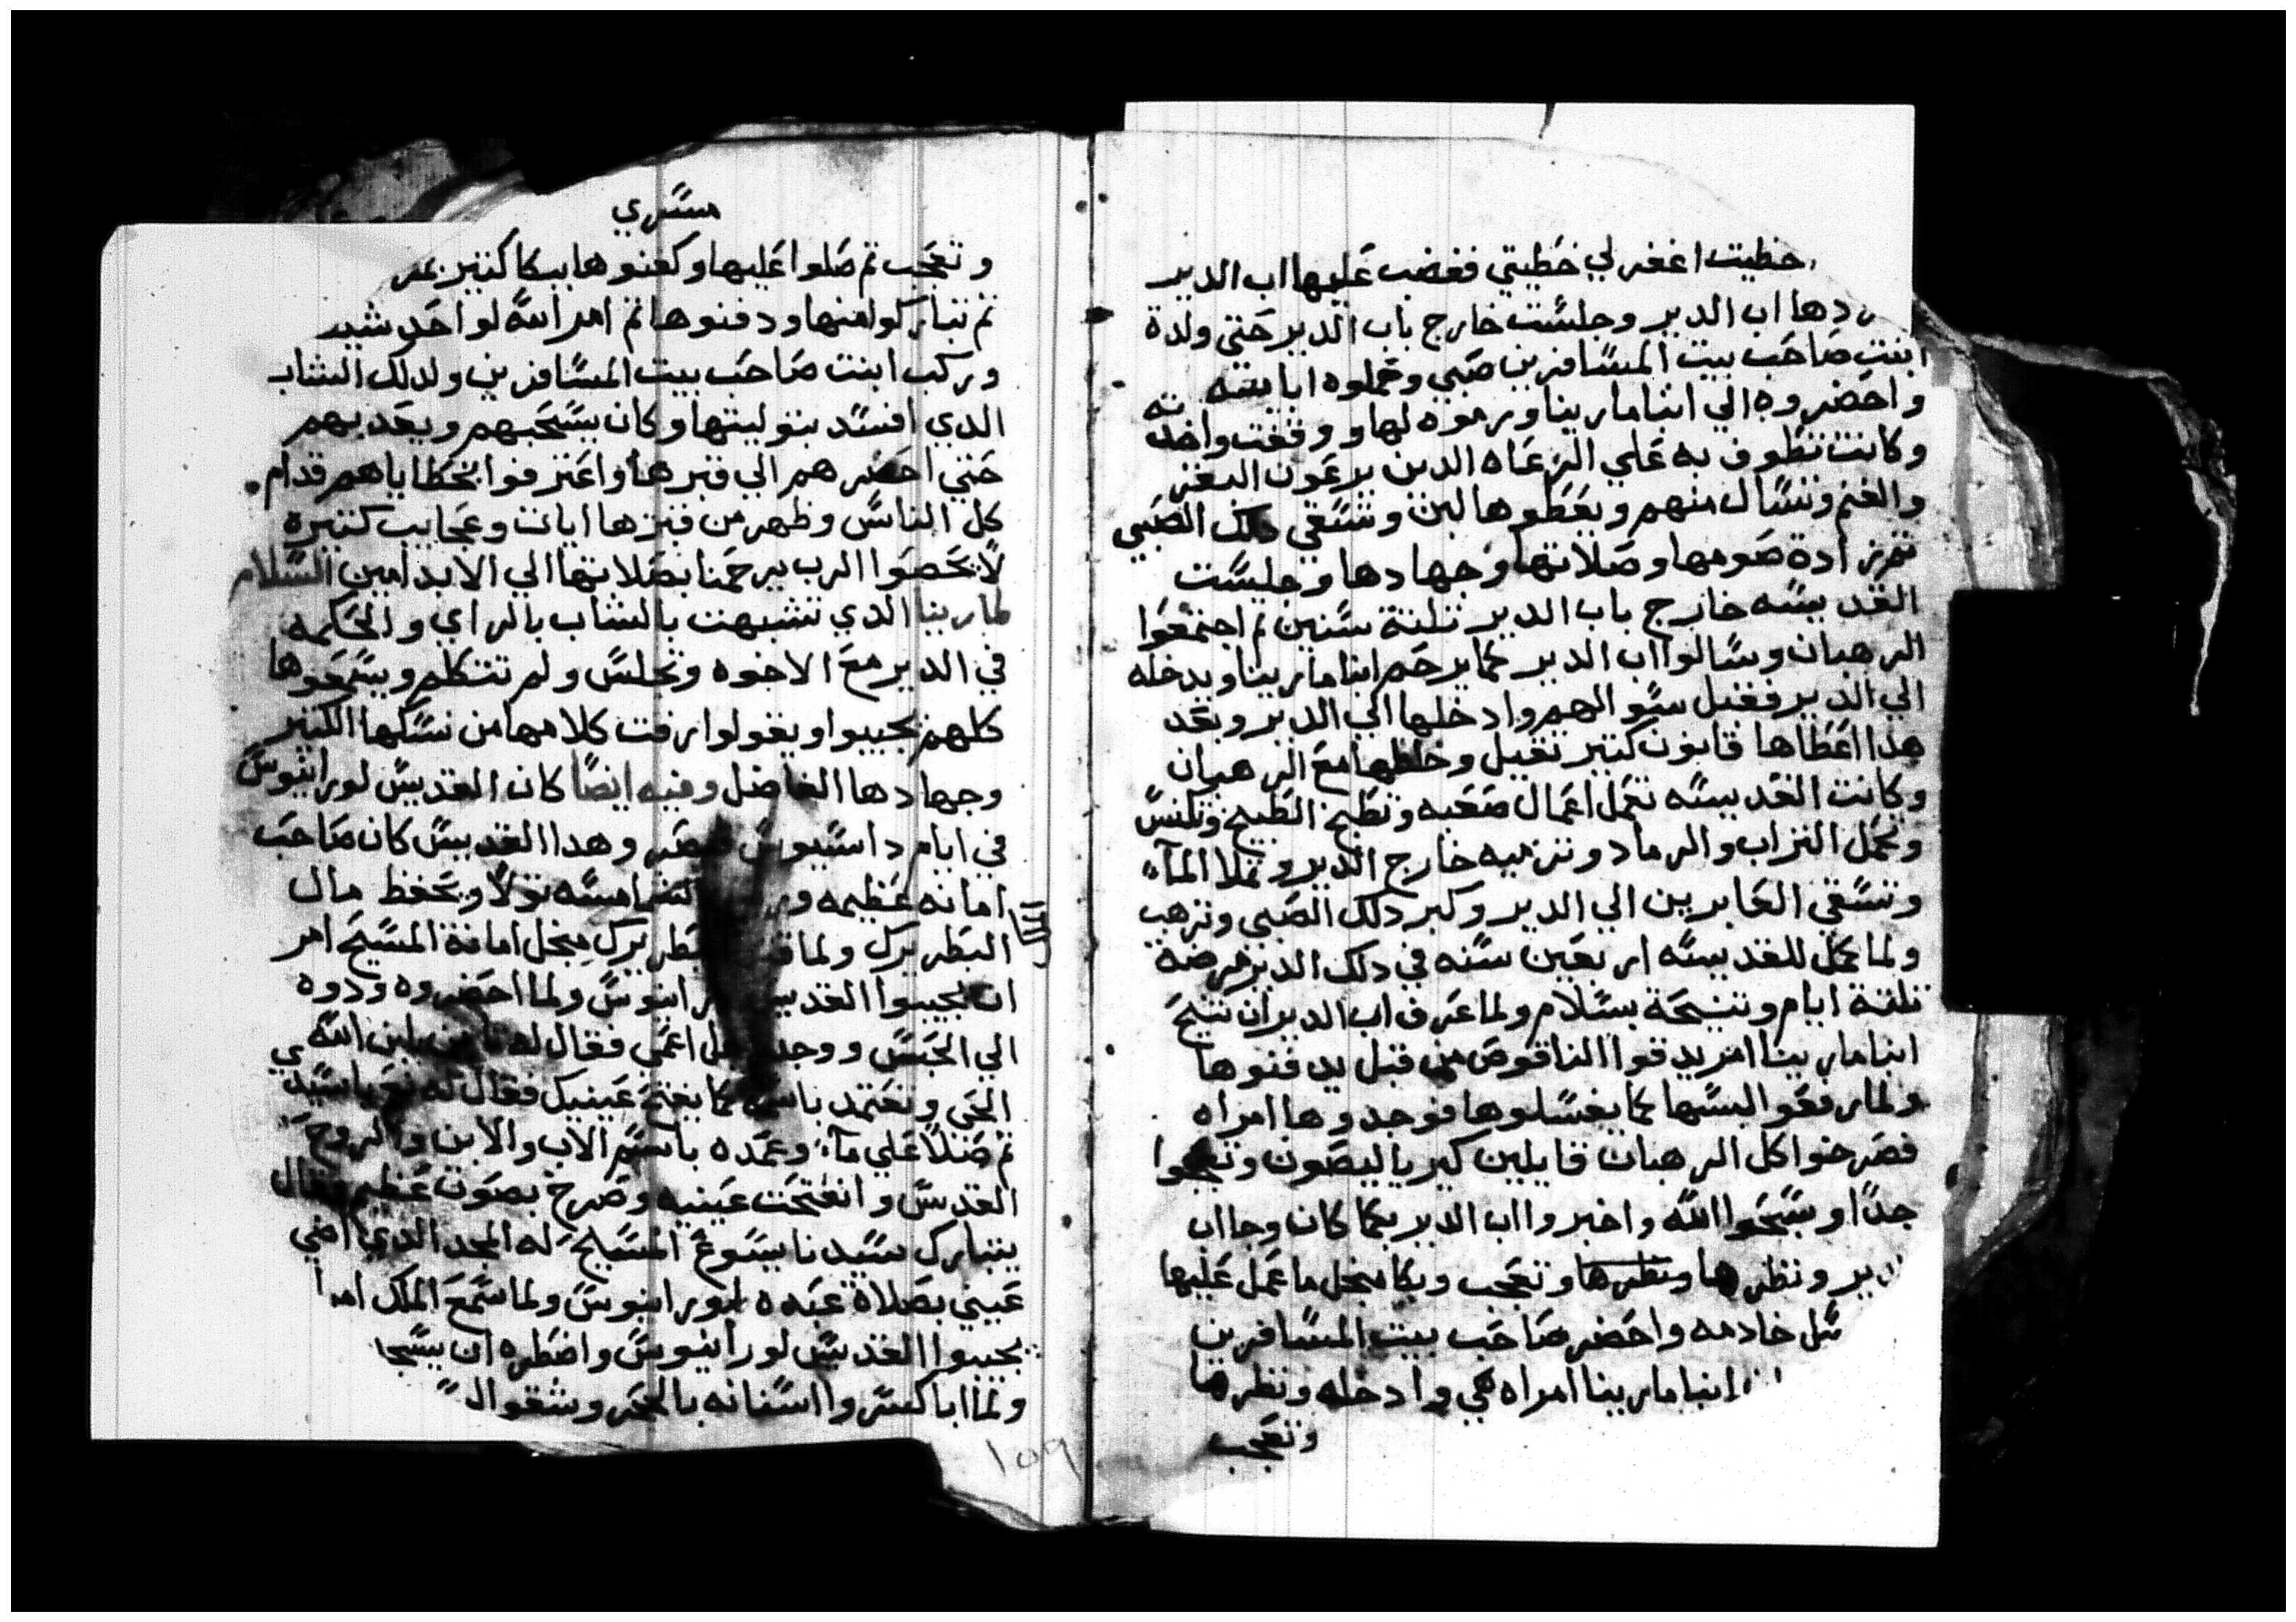 خطيت اغفر لي خطيتي فغضب عليها اب الدير
دها اب الدير وجلست خارج باب الدير حتي ولدة
ابنت صاحب بيت المسافرين صبي وحملوه ابا
واحضروه الي انبا مارينا ورموه لها ووقفت واخدته
وكانت تطوف به علي الرعاه الدين يرعون البقر
والغنم وتسال منهم ويعطوها لبن وتسقي دلك الصبي
تمزادة صومها وصلاتها وجهادها وجلست
القديسه خارج باب الدير تلتة سنين تم اجتمعوا
الرهبان وسالوا اب الدير كما يرحم انبا مارينا ويدخله
الي الدير فقبل سوالهم وادخلها الي الدير وبعد
هدا اعطاها قانون كتير تقيل وخلطها مع الرهبان
وكانت القديسه تعمل اعمال صعبه وتطبخ الطبيخ وتكنس
وتحمل التراب والرماد وترميه خارج الدير وتملا المآء
وتسقي العابرين الي الدير وكبر دلك الصبي وترهب
ولما كمل للقديسه اربعين سنه في دلك الدير مرضة
تلتة ايام وتنيحة بسلام ولما عرف اب الدير ان تنيح
انبا مارينا امر يدقوا الناقوص من قبل يدفنوها
ولما رفعوا لبسها كما يغسلوها فوجدوها امراه
فصرخوا كل الرهبان قايلين كيرياليصون وتعجبوا
جدًا وسبحوا الله واخبروا اب الدير بما كان وجا اب
دير ونظرها ونظرها وتعجب وبكا منجل ما عمل عليها
خادمه واحضر صاحب بيت المسافرين
انبا مارينا امراه هي وادخله ونظرها
وتعجب
مسري
وتعجب تم صلوا عليها وكفنوها ببكا كتير
تم تباركوا منها ودفنوها تم امر الله لواحد شيد
وركب ابنت صاحب بيت المسافرين ولدلك الشاب
الدي افسد بتوليتها وكان يسحبهم ويعدبهم
حتي احضرهم الي قبرها واعترفوا بخطاياهم قدام
كل الناس وظهر من قبرها ايات وعجايب كتيره
لا تحصوا الرب يرحمنا بصلاتها الي الابد امين السلام
لمارينا الدي تشبهت بالشاب بالراي والحكمه
في الدير مع الاخوه وتجلس ولم تتكلم ويسمعوها
كلهم يجيبوا ويقولوا رفت كلامها من نسكها الكتير
وجهادها الفاضل وفيه ايضًا كان القديس لورانيوس
في ايام داسيوس قيصر وهدا القديس كان صاحب
امانه عظيمه الشماسه تولا ويحفظ مال
البطريرك ولما البطريرك منجل امانة المسيح امر
ان يجيبوا القديس لورانيوس ولما احضروه ودوه
الي الحبس ووجد اعمي فقال له بابن الله
الحي وتعتمد باسمه كما يفتح عينيك فقال له نعم ياسيدي
تم صلا علي مآء وعمده باسم الاب والابن والروح
القدس وانفتحت عينيه وصرخ بصوت عظيم وقال
يتبارك سيدنا يسوع المسيح له المجد الدي اضي
عيني بصلاة عبده لورانيوس ولما سمع الملك امر
يجيبوا القديس لورانيوس واضطره ان يسجد
ولما ابا كسروا اسنانه بالحجر وشقوا
١٥٩